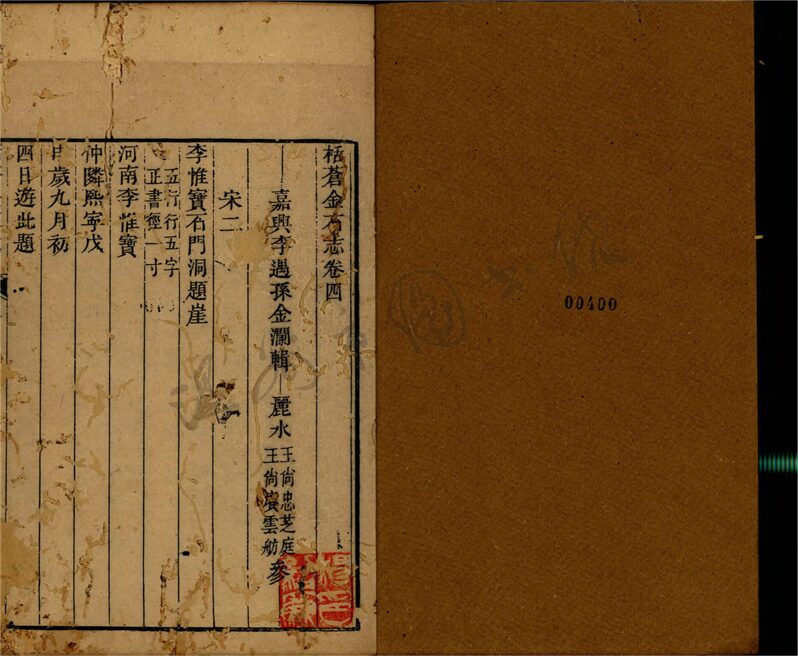 栝蒼金石志卷四
嘉興李遇孫金瀾輯 麗水 王尙忠芝庭 王尙賡雲舫 參
宋二
李惟寶石門洞題崖
五行行五字
正書徑一寸
河南李惟寶
仲隣熙寧戊
申歲九月初
四日遊此題
00400